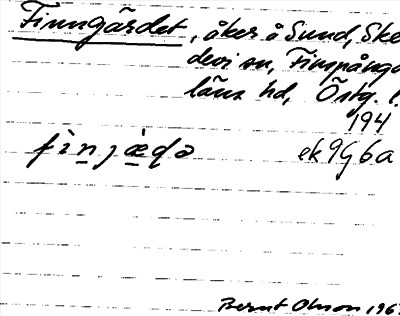 Finngärdet, åker å Sund, Ske
devi sn, Finspånga
läns hd, Östg. l.
194
fìnjæ̀ɖə ek 9G6a
Bernt Olson 196